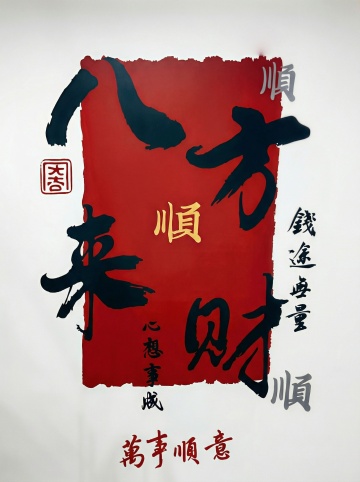 順
八方
大吉
順
来财
錢途無量
心想事成
順
萬事順意